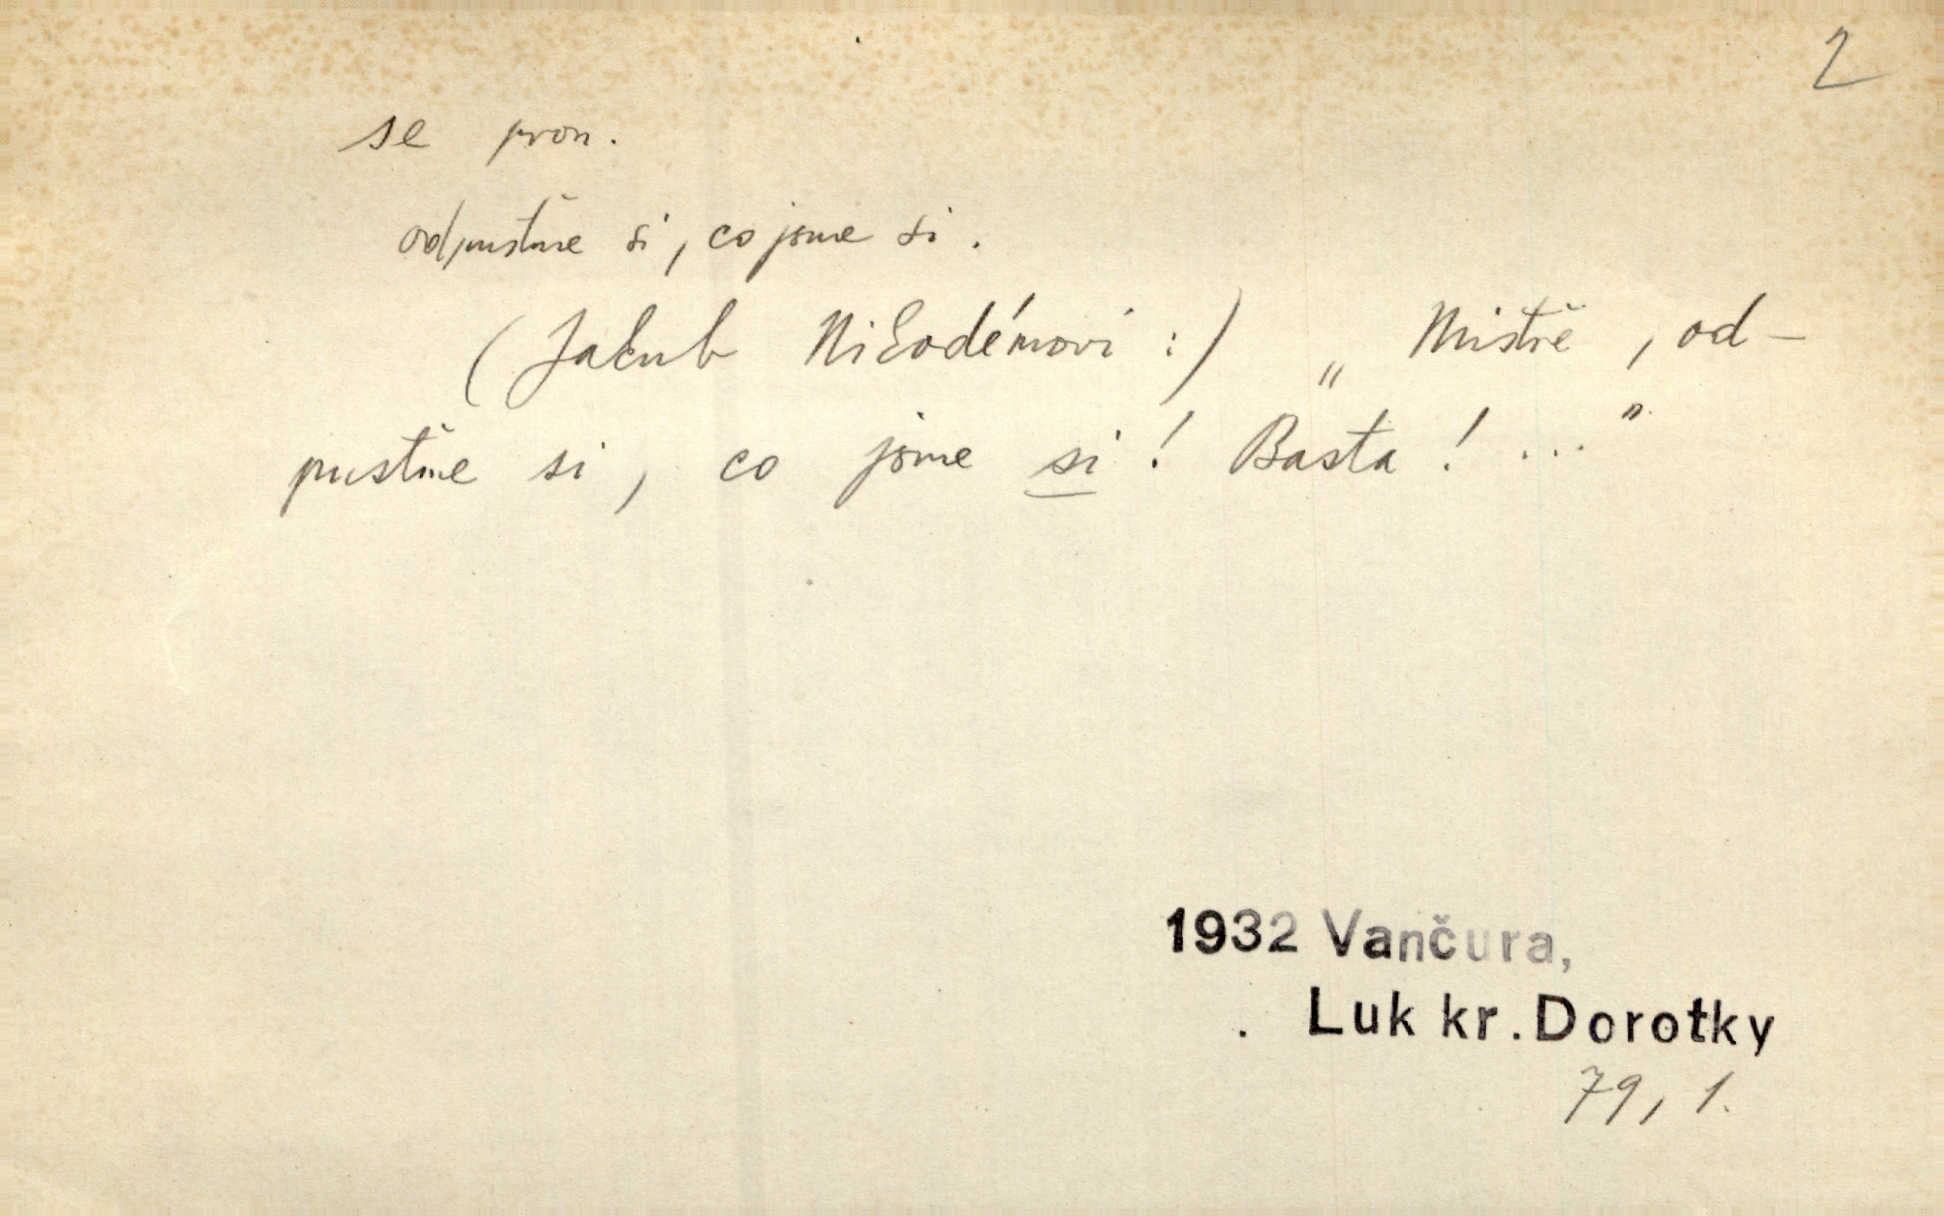 2
se pron.
odpusťme si, co jsme si.
(Jakub Nikodémovi:) „Mistře, od-
pusťme si, co jsme si! Basta! ..."
1932 Vančura,
Luk kr. Dorotky
79, 1.